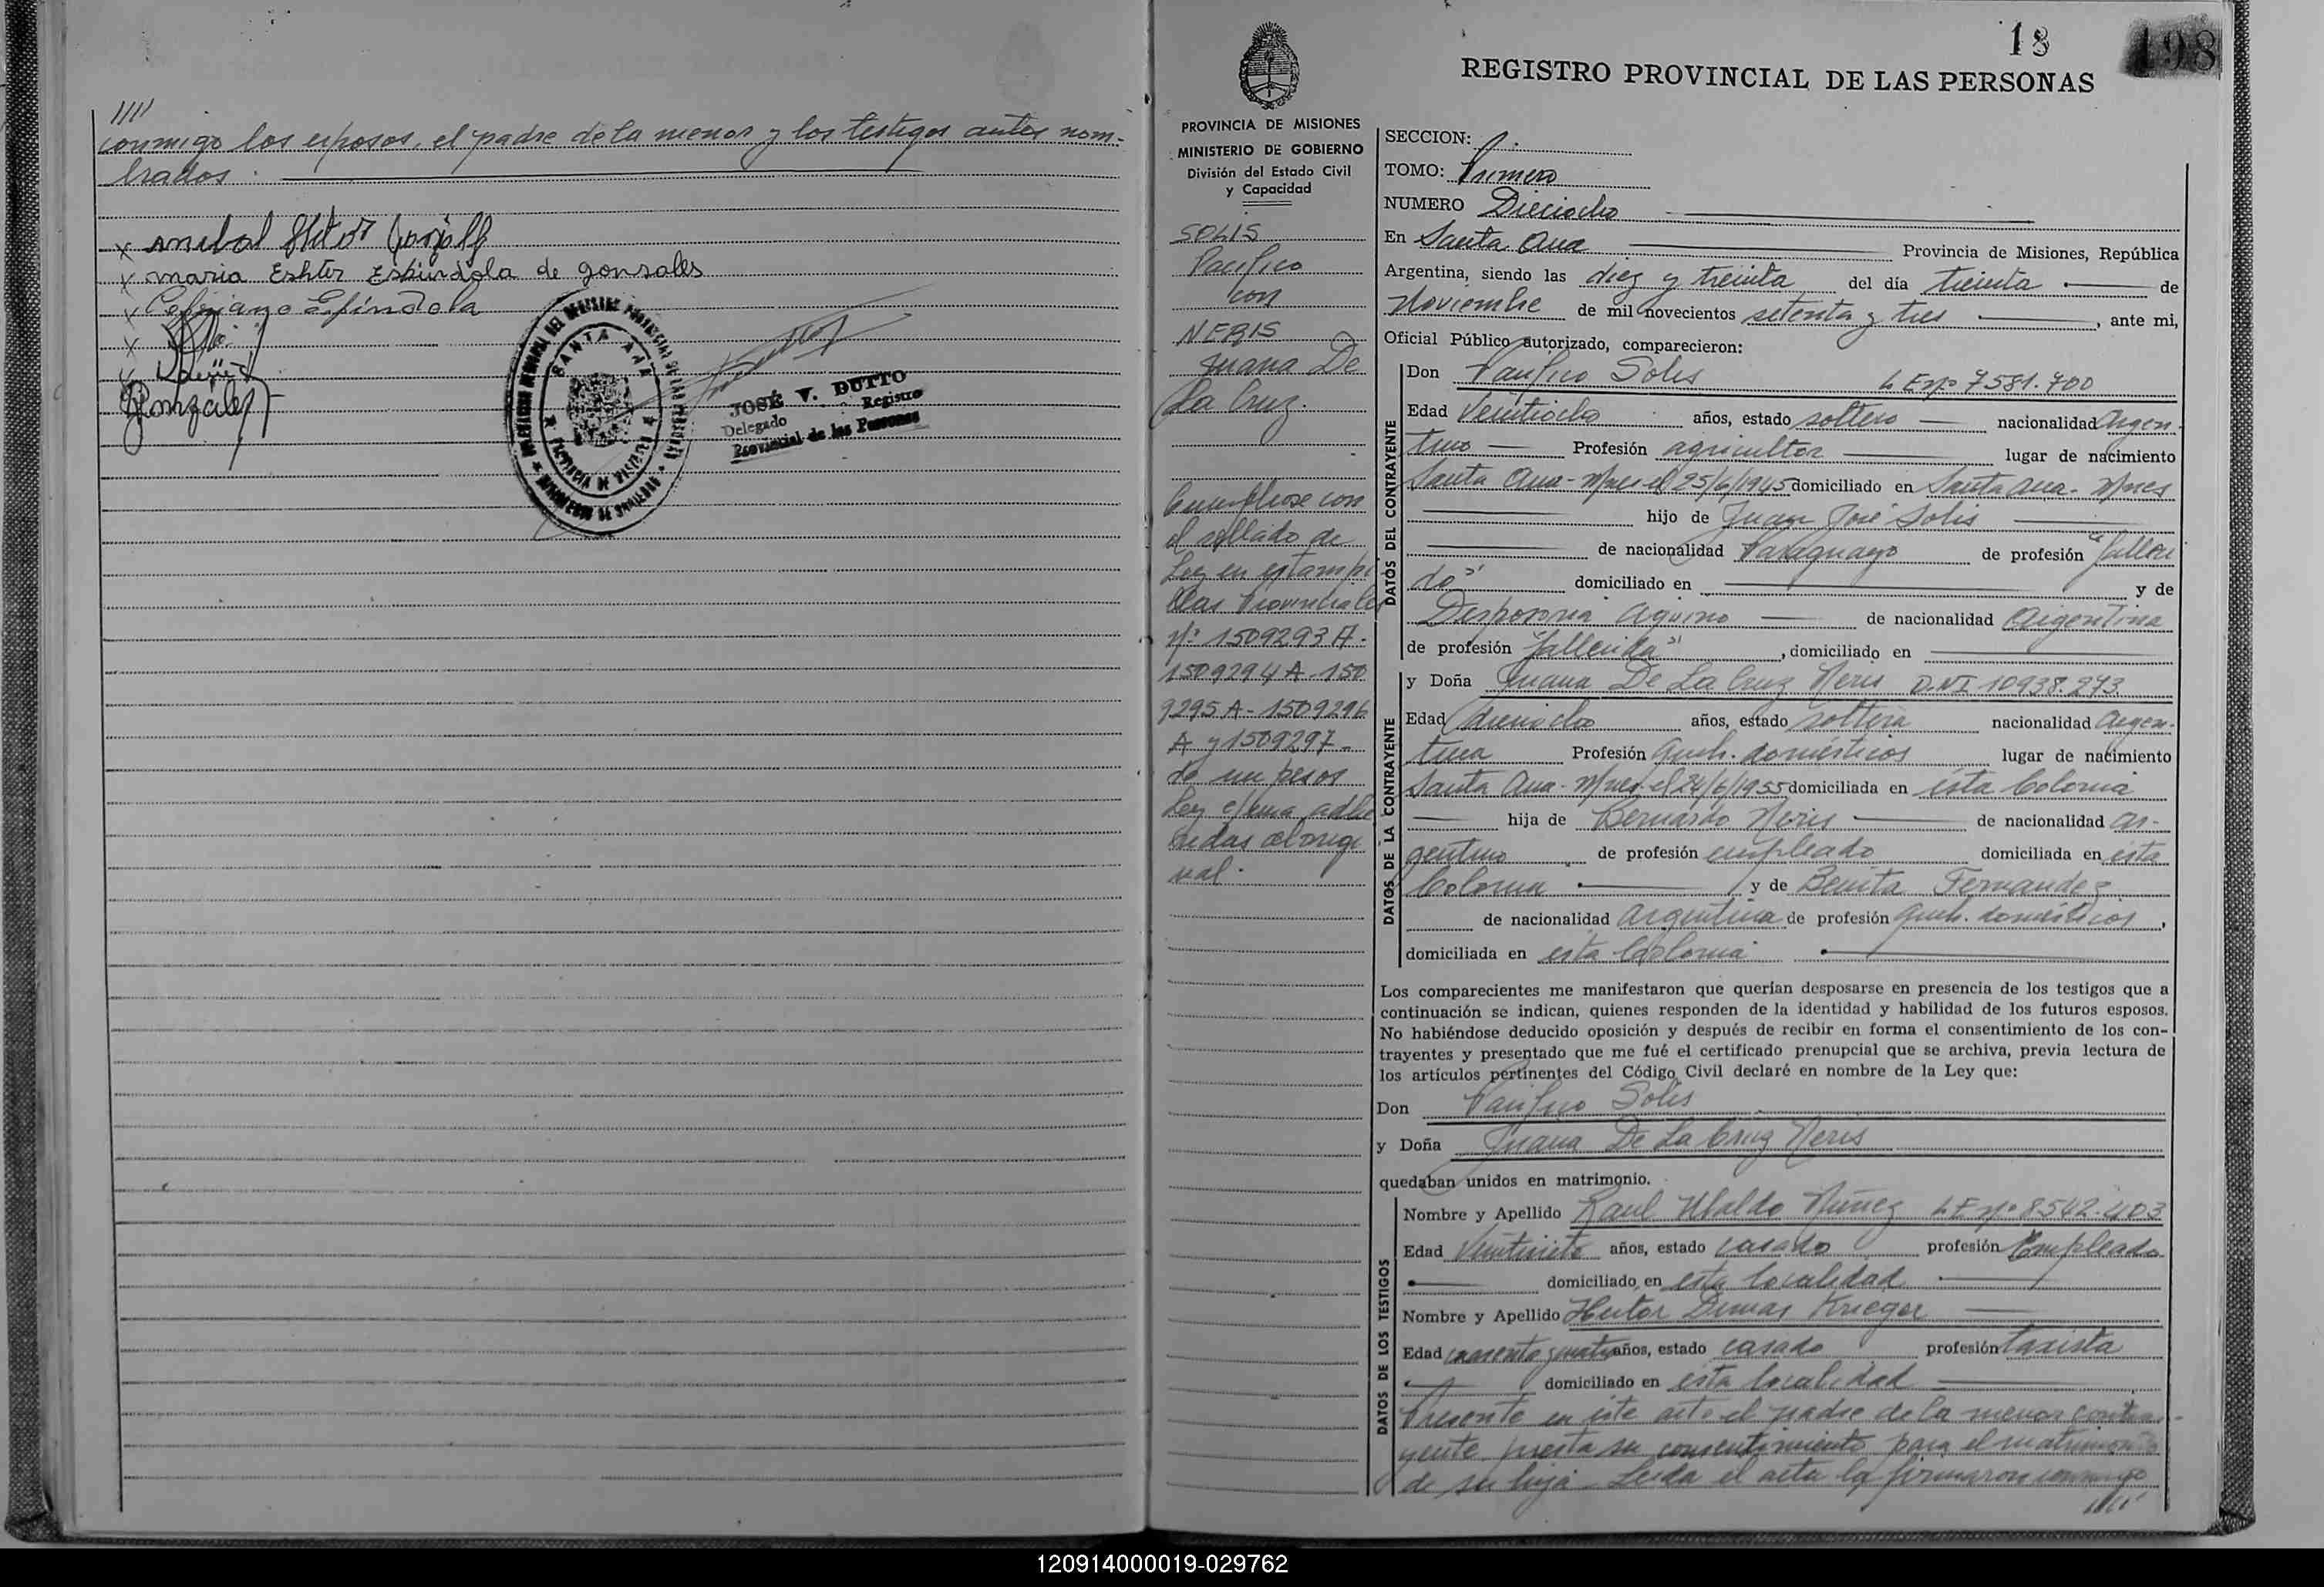 ////
conmigo los esposos, el padre de la menor y los testigos antes nom-
brados.
x
x maria Eshter Espindola de gonsales
x Cipriano Espindola
x
x
Gonzalez
SANTA ANA
JOSÉ V. DUTTO
Delegado Registro
Provincial de las Personas
18
198
REGISTRO PROVINCIAL DE LAS PERSONAS
PROVINCIA DE MISIONES
MINISTERIO DE GOBIERNO
División del Estado Civil
y Capacidad
SOLIS
Pacifico
con
NERIS
Juana De
La Cruz.
Cumpliose con
el sellado de
Ley en estampi
llas Provinciales
Nº 1509293 A-
1509294 A-150
9295 A-1509296
A y 1509297-
de un pesos
Ley c/una adhe
ridas al origi
nal.
SECCION:
TOMO: Primero
NUMERO Dieciocho
En Santa Ana Provincia de Misiones, República
Argentina, siendo las diez y treinta del día treinta de
Noviembre de mil novecientos setenta y tres, ante mi,
Oficial Público autorizado, comparecieron:
DATOS DEL CONTRAYENTE
Don Pacifico Solis L E Nº 7581.700
Edad Veintiocho años, estado soltero nacionalidad Argen-
tino Profesión agricultor lugar de nacimiento
Santa Ana - Mnes el 25/6/1945 domiciliado en Santa Ana - Mnes
hijo de Juan José Solis
de nacionalidad Paraguayo de profesión "falleci
do" domiciliado en y de
Desposoria Aquino de nacionalidad Argentina
de profesión "fallecida", domiciliado en
DATOS DE LA CONTRAYENTE
y Doña Juana De La Cruz Neris D.N.I 10938.273
Edad dieciocho años, estado soltera nacionalidad Argen-
tina Profesión queh. domésticos lugar de nacimiento
Santa Ana - Mnes el 24/6/1955 domiciliada en ésta Colonia
hija de Bernardo Neris de nacionalidad ar-
gentino de profesión empleado domiciliada en ésta
Colonia y de Benita Fernandez
de nacionalidad Argentina de profesión queh. domésticos,
domiciliada en esta Colonia
Los comparecientes me manifestaron que querían desposarse en presencia de los testigos que a
continuación se indican, quienes responden de la identidad y habilidad de los futuros esposos.
No habiéndose deducido oposición y después de recibir en forma el consentimiento de los con-
trayentes y presentado que me fué el certificado prenupcial que se archiva, previa lectura de
los artículos pertinentes del Código Civil declaré en nombre de la Ley que:
Don Pacifico Solis
y Doña Juana De La Cruz Neris
quedaban unidos en matrimonio.
DATOS DE LOS TESTIGOS
Nombre y Apellido Raul Ubaldo Nuñez L E Nº 8.542.403
Edad Veintisiete años, estado casado profesión Empleado
domiciliado en esta localidad
Nombre y Apellido Hector Dimas Krieger
Edad cuarenta y cuatro años, estado casado profesión taxista
domiciliado en esta localidad
Presente en éste acto el padre de la menor contra-
yente presta su consentimiento para el matrimonio
de su hija. Leida el acta la firmaron conmigo
////
120914000019-029762